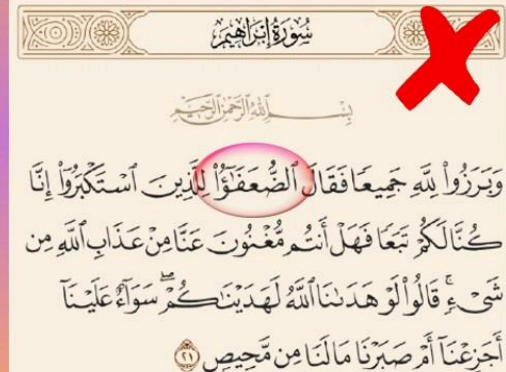 سُورَةُ إِبْرَاهِيمَ
بِسْمِ ٱللَّهِ ٱلرَّحْمَٰنِ ٱلرَّحِيمِ
وَبَرَزُوا۟ لِلَّهِ جَمِيعًا فَقَالَ ٱلضُّعَفَٰٓؤُا۟ لِلَّذِينَ ٱسْتَكْبَرُوٓا۟ إِنَّا
كُنَّا لَكُمْ تَبَعًا فَهَلْ أَنتُم مُّغْنُونَ عَنَّا مِنْ عَذَابِ ٱللَّهِ مِن
شَىْءٍ ۚ قَالُوا۟ لَوْ هَدَىٰنَا ٱللَّهُ لَهَدَيْنَٰكُمْ ۖ سَوَآءٌ عَلَيْنَآ
أَجَزِعْنَآ أَمْ صَبَرْنَا مَا لَنَا مِن مَّحِيصٍ ٢١